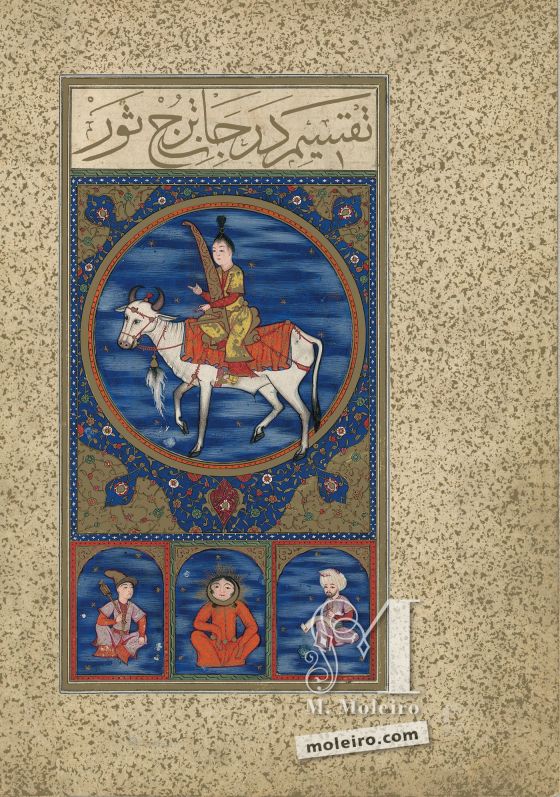 تقسیم درجات برج ثور
M. Moleiro
moleiro.com